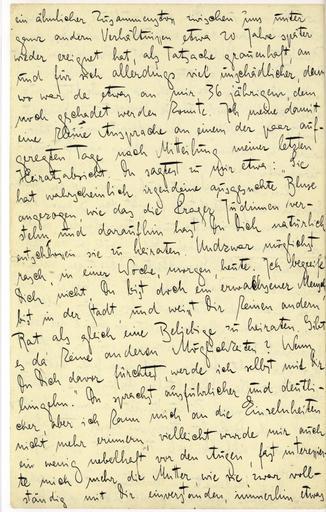 ein ähnlicher Zusammenstoss zwischen uns unter
ganz andern Verhältnissen etwa 20 Jahre später
wieder ereignet hat, als Tatsache grauenhaft an
und für sich allerdings viel unschädlicher, denn
wo war da etwas an mir 36 jährigem, dem
noch geschadet werden konnte. Ich meine damit
eine kleine Aussprache an einem der paar auf-
geregten Tage nach Mitteilung meiner letzten
Heiratsabsicht. Du sagtest zu mir etwa: „Sie
hat wahrscheinlich irgendeine ausgesuchte Bluse
angezogen, wie das die Prager Jüdinnen ver-
stehn und daraufhin hast Du Dich natürlich
entschlossen sie zu heiraten. Undzwar möglichst
rasch, in einer Woche, morgen, heute. Ich begreife
Dich nicht, Du bist doch ein erwachsener Mensch,
bist in der Stadt, und weisst Dir keinen andern
Rat als gleich eine Beliebige zu heiraten. Gibt
es da keine anderen Möglichkeiten? Wenn
Du Dich davor fürchtest, werde ich selbst mit Dir
hingehn." Du sprachst ausführlicher und deutli-
cher, aber ich kann mich an die Einzelnheiten
nicht mehr erinnern, vielleicht wurde mir auch
ein wenig nebelhaft vor den Augen, fast interessier-
te mich mehr die Mutter, wie sie, zwar voll-
ständig mit Dir einverstanden, immerhin etwas